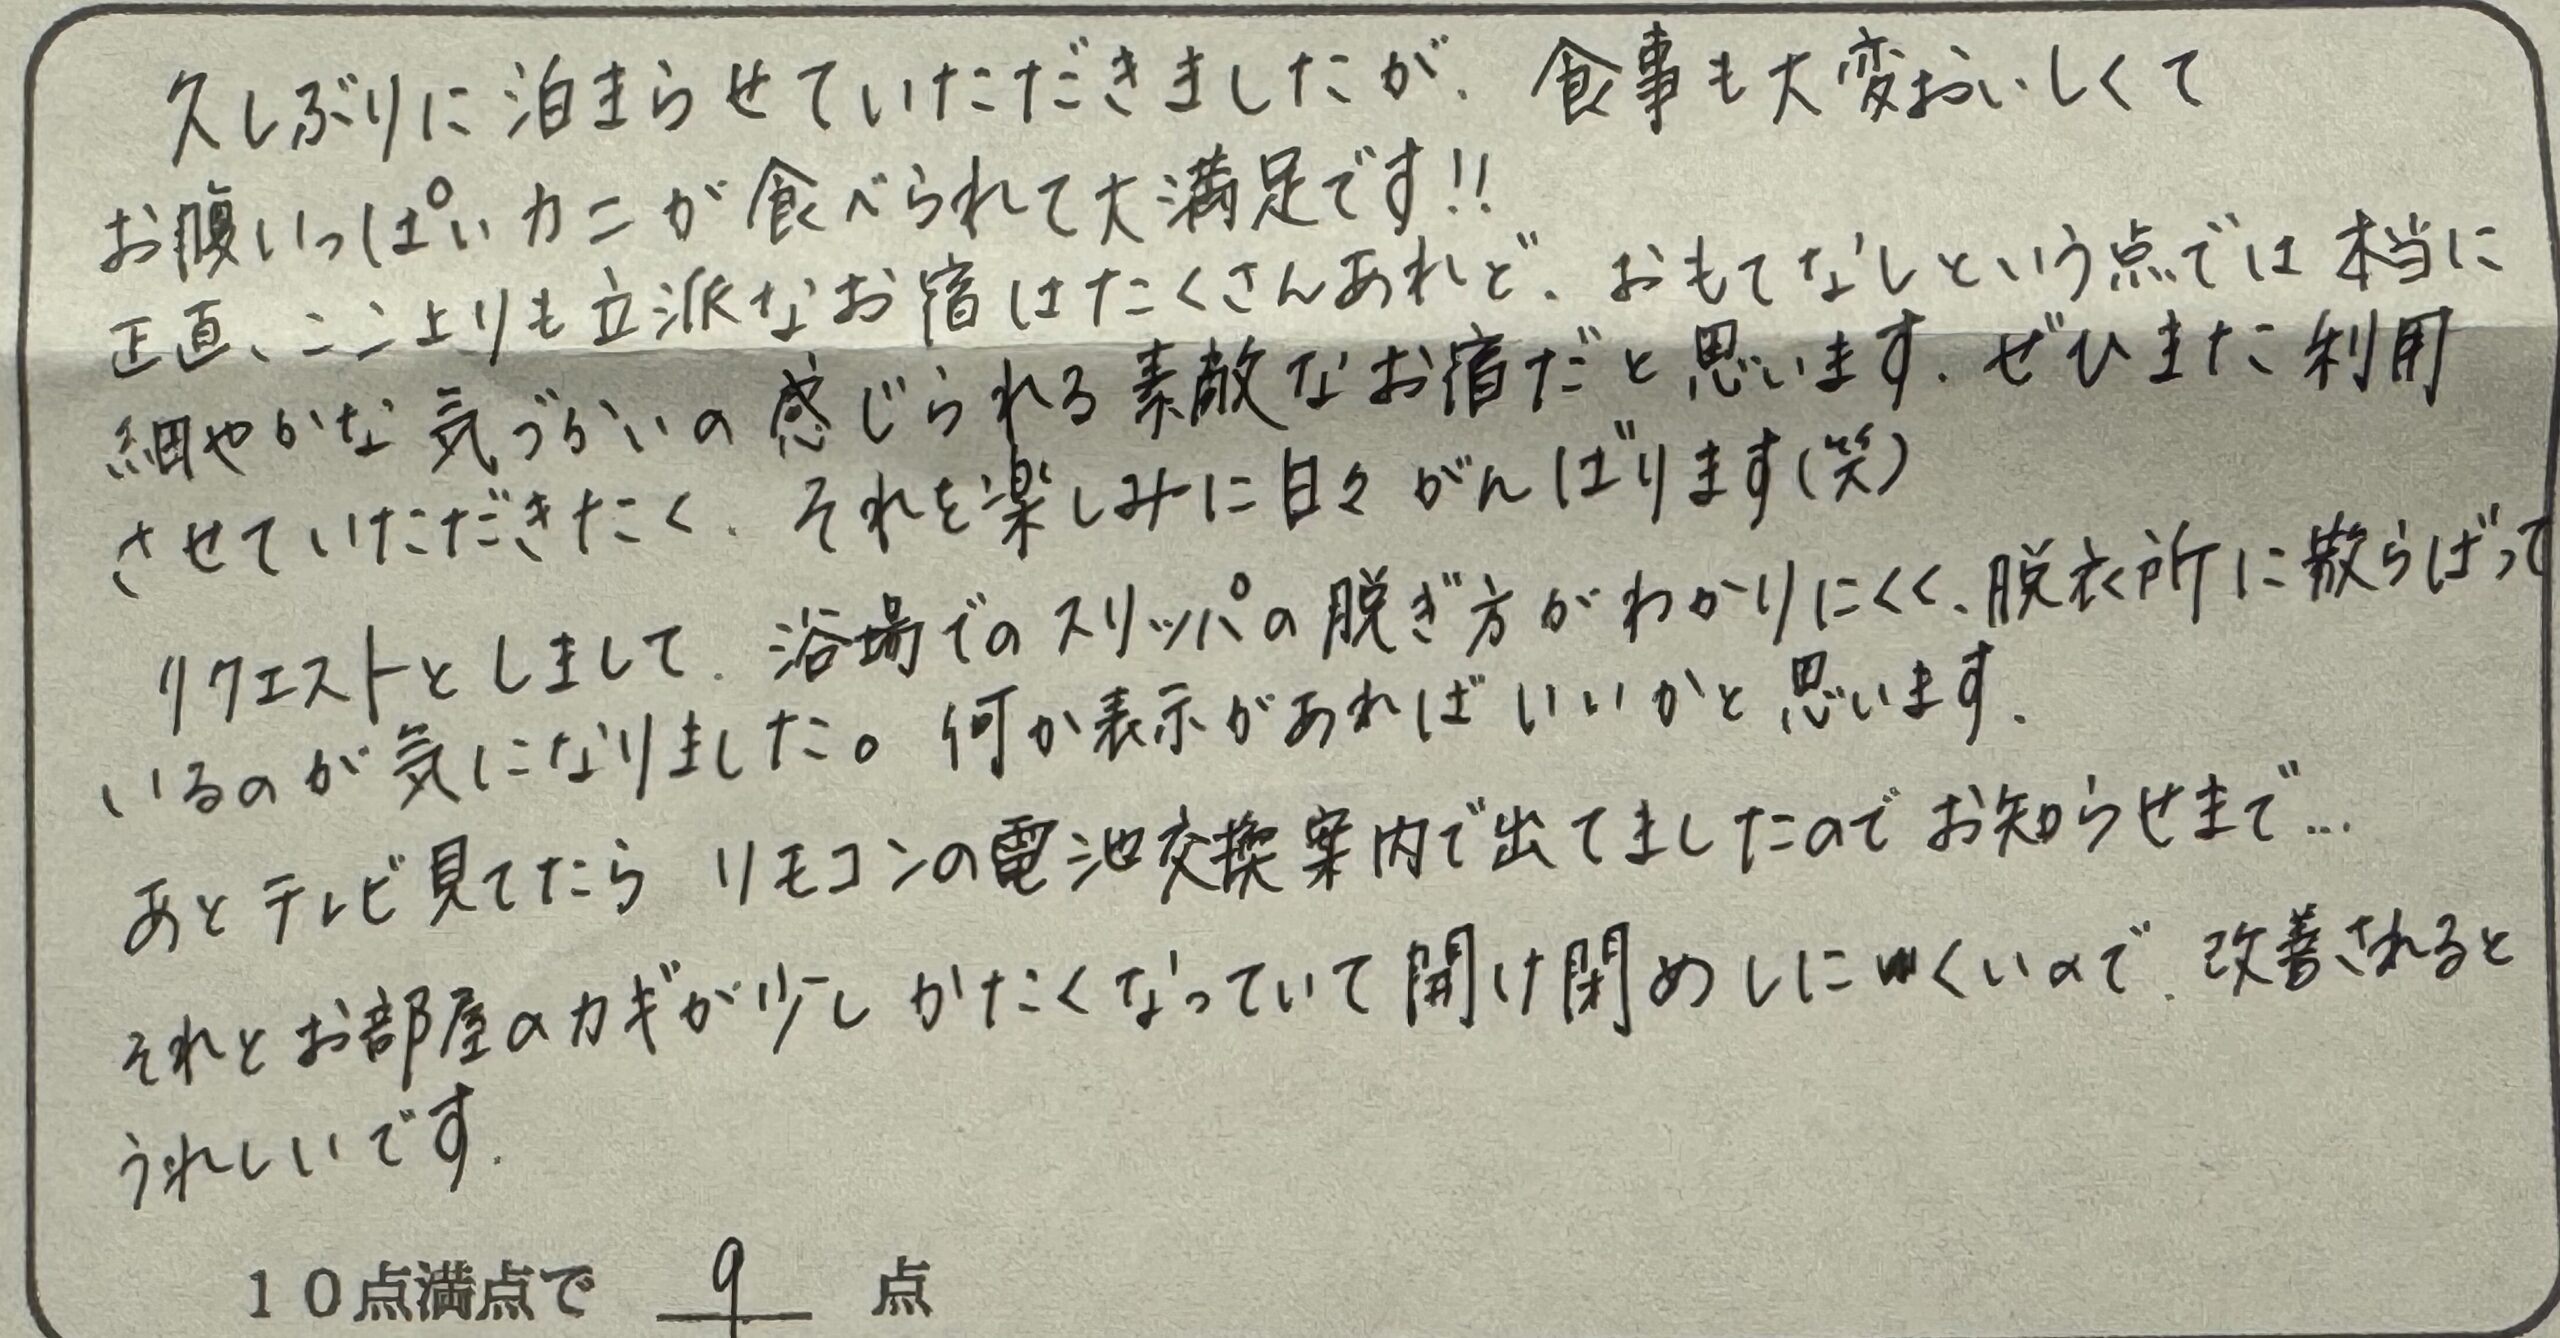 久しぶりに泊まらせていただきましたが、食事も大変おいしくて
お腹いっぱいカニが食べられて大満足です!!
正直、ここよりも立派なお宿はたくさんあれど、おもてなしという点では本当に
細やかな気づかいの感じられる素敵なお宿だと思います。ぜひまた利用
させていただきたく、それを楽しみに日々がんばります(笑)
リクエストとしまして、浴場でのスリッパの脱ぎ方がわかりにくく、脱衣所に散らばって
いるのが気になりました。何か表示があればいいかと思います。
あとテレビ見てたら リモコンの電池交換案内で出てましたのでお知らせまで…
それとお部屋のカギが少しかたくなっていて開け閉めしにくいので、改善されると
うれしいです。
10点満点で 9 点